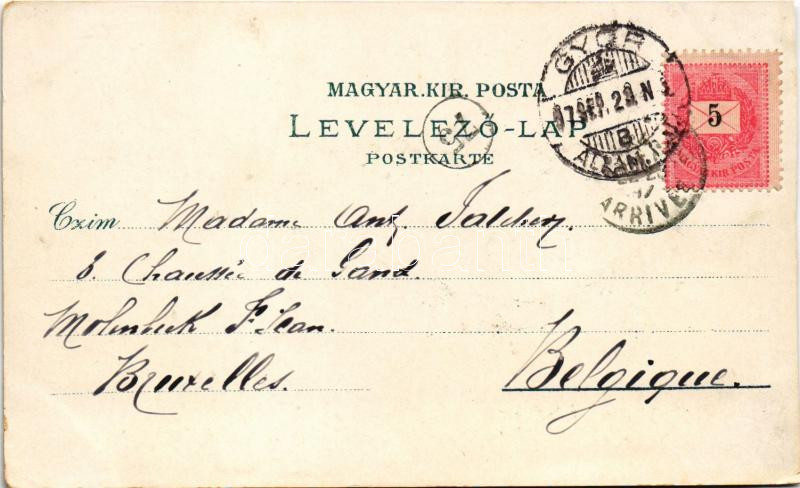 MAGYAR. KIR. POSTA
LEVELEZŐ-LAP
POSTKARTE
GYŐR
97 SEP. 2
B
ARRIVÉE
5
MAGYAR KIR POSTA
75
Czim Madame Ant.
8. Chaussée de Gand.
Molenbeek St Jean.
Bruxelles.
Belgique.